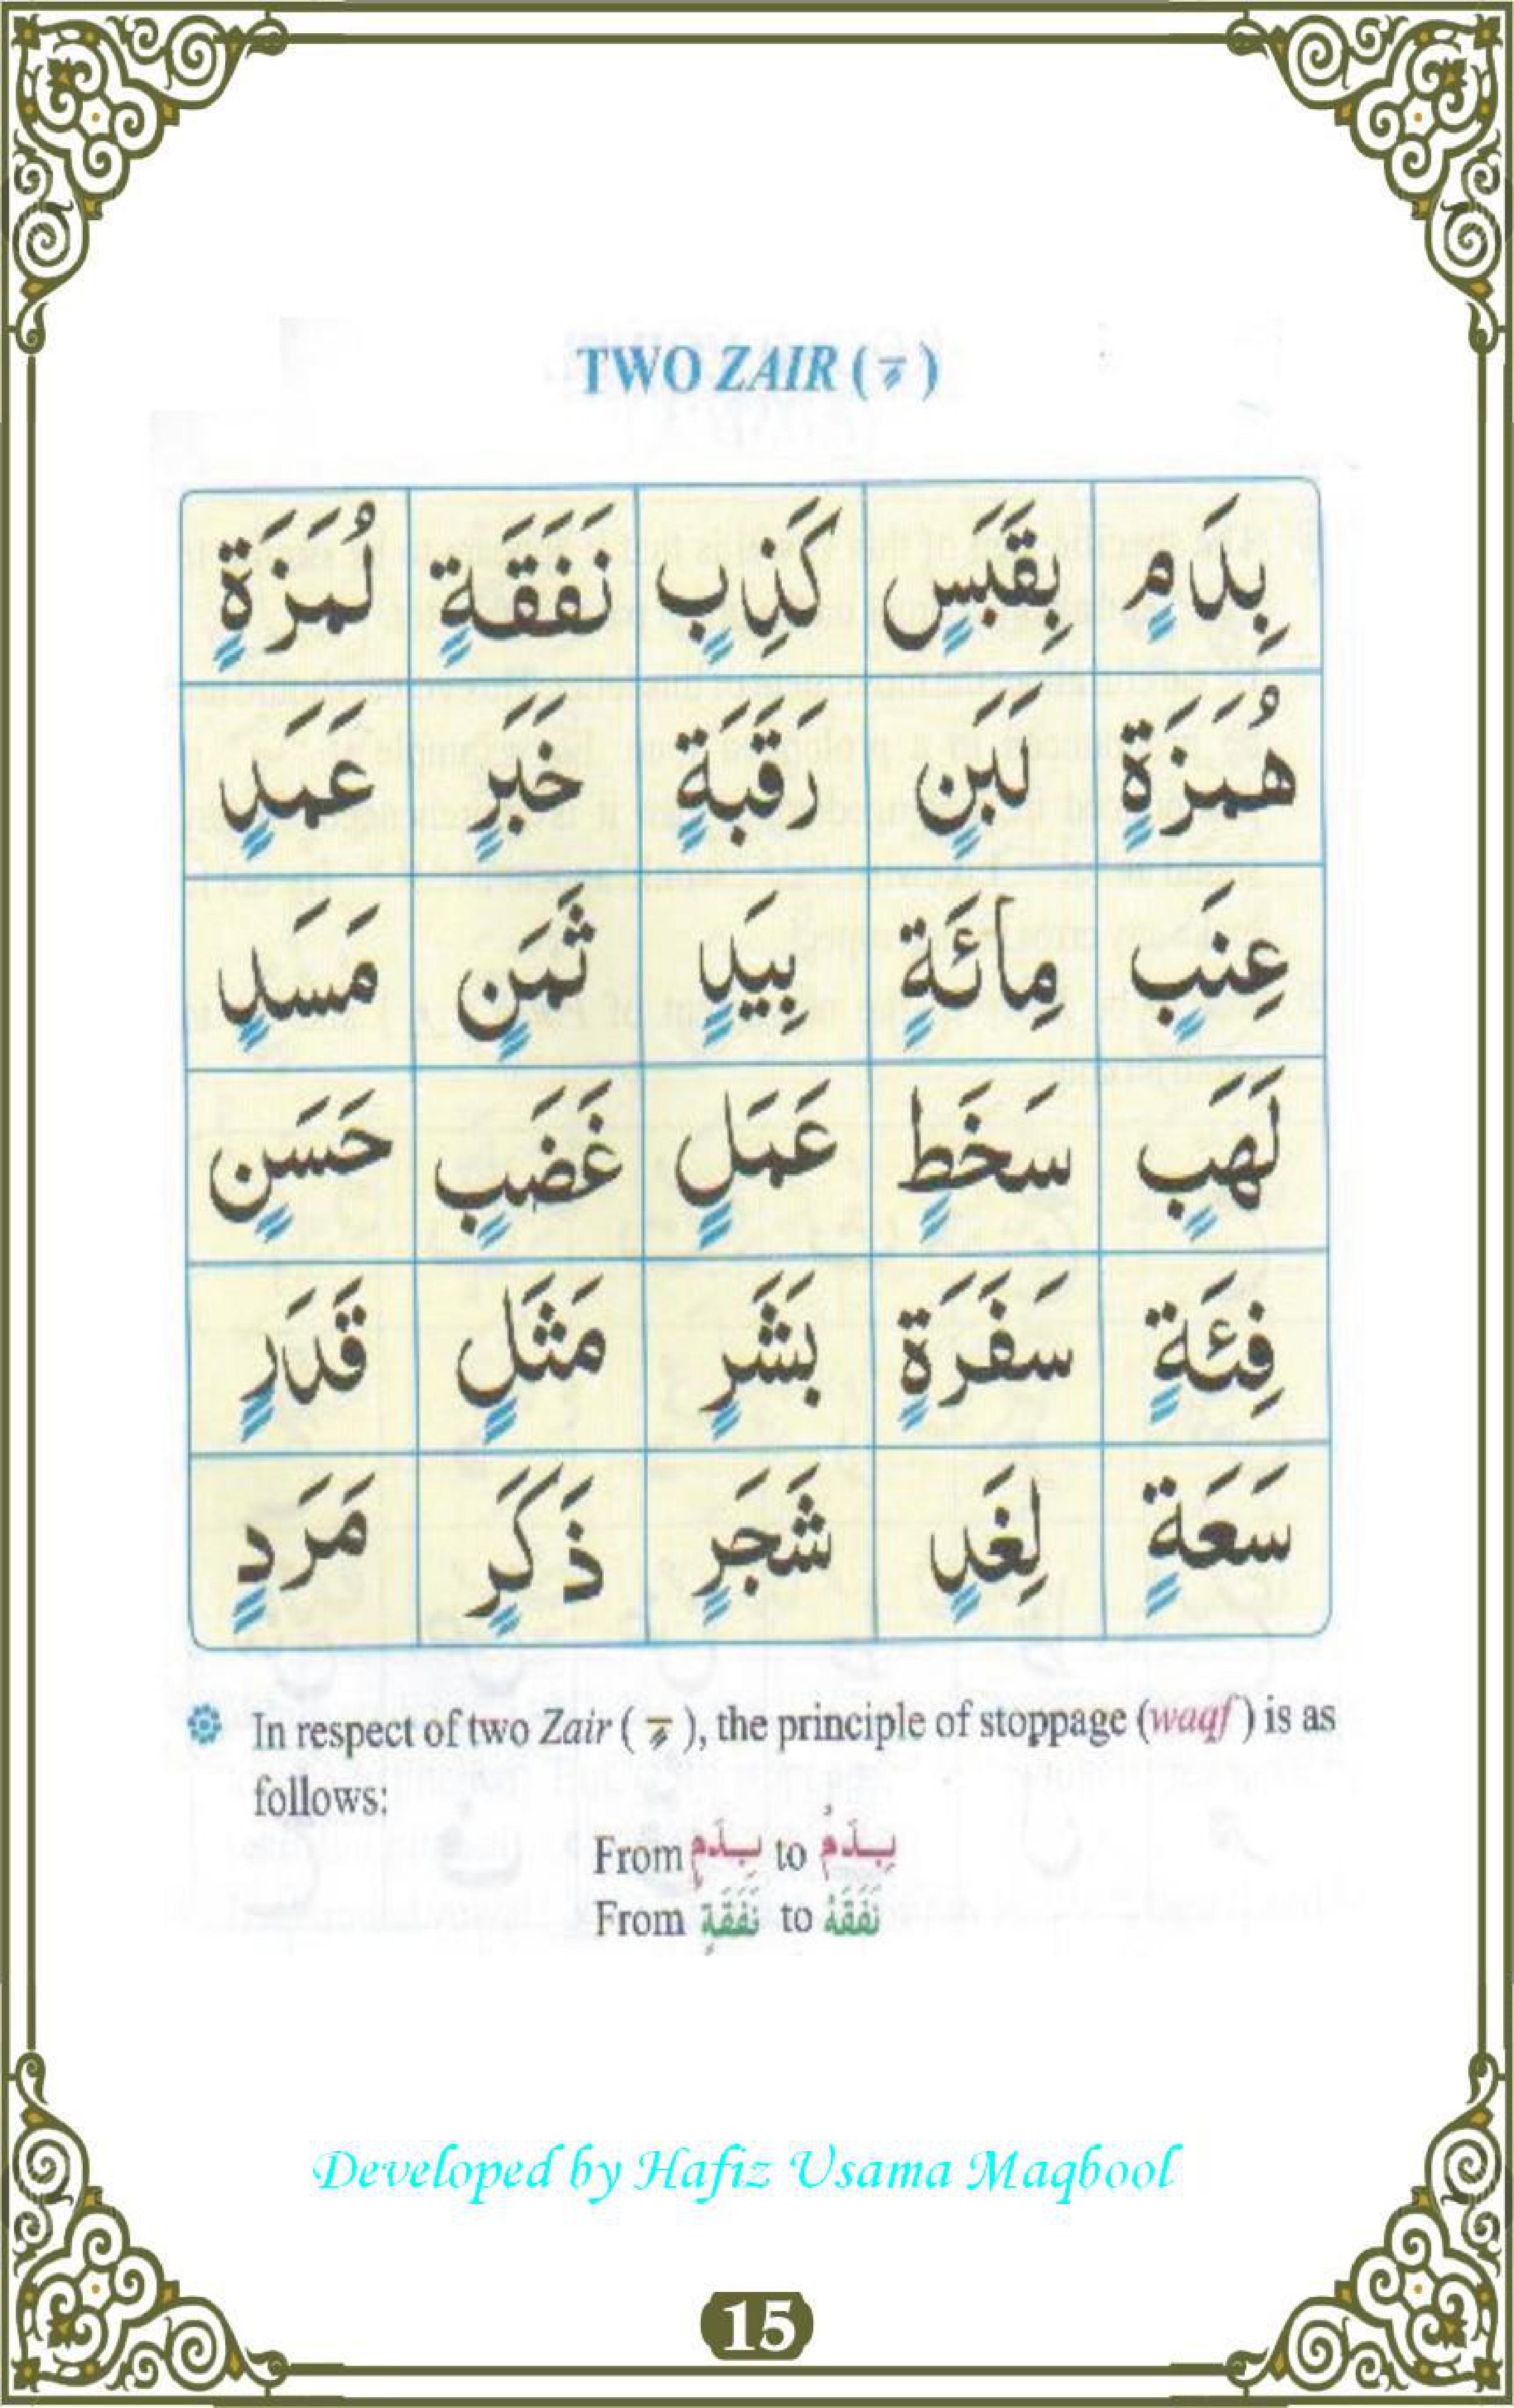 TWO ZAIR ( ـٍ )
بِدَمٍ بِقَبَسٍ كَذِبٍ نَفَقَةٍ لُمَزَةٍ
هُمَزَةٍ لَبَنٍ رَقَبَةٍ خَبَرٍ عَمَدٍ
عِنَبٍ مِائَةٍ بِيَدٍ ثَمَنٍ مَسَدٍ
لَهَبٍ سَخَطٍ عَمَلٍ غَضَبٍ حَسَنٍ
فِئَةٍ سَفَرَةٍ بَشَرٍ مَثَلٍ قَدَرٍ
سَعَةٍ لِغَدٍ شَجَرٍ ذَكَرٍ مَرَدٍ
In respect of two Zair ( ـٍ ), the principle of stoppage (waqf ) is as
follows:
From بِدَمٍ to بِدَمْ
From نَفَقَةٍ to نَفَقَهْ
Developed by Hafiz Usama Maqbool
15